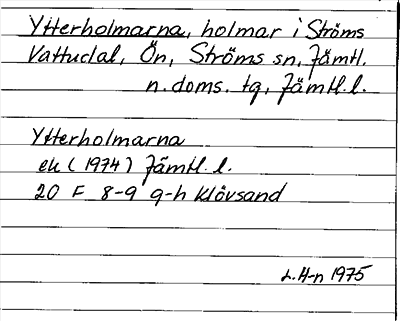 Ytterholmarna, holmar i Ströms
Vattudal, Ön, Ströms sn, Jämtl.
n. doms. tg, Jämtl. l.
Ytterholmarna
ek (1974) Jämtl. l.
20 F 8-9 g-h Klövsand
L. H-n 1975